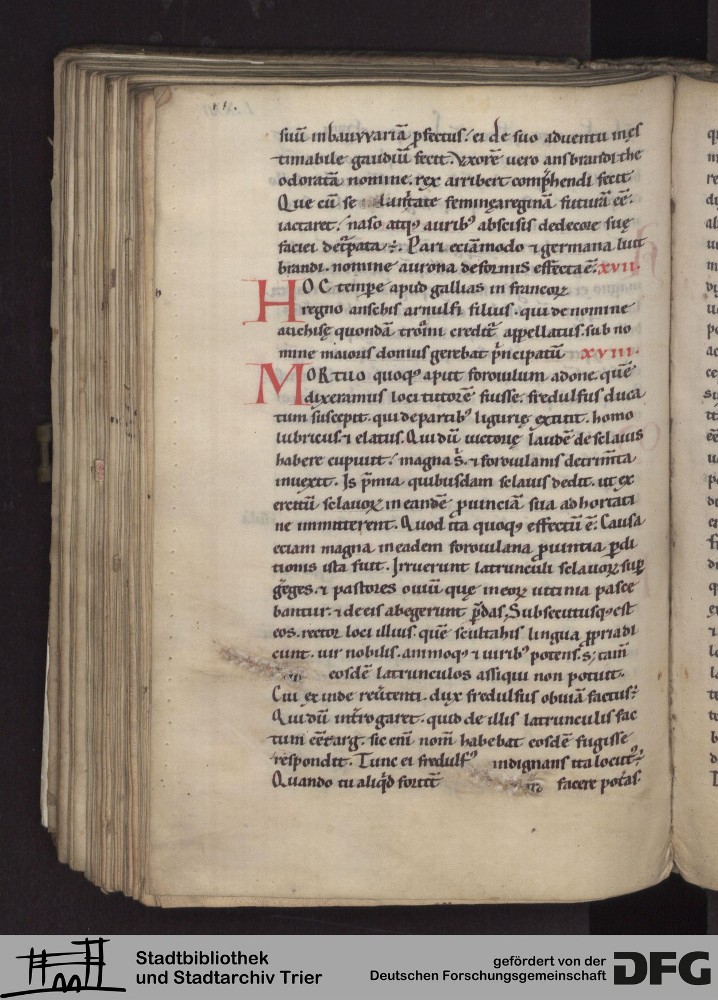 suū in bauvvariā p̄fectus / ei de suo aduentu ines
timabile gaudiū fecit. Vxorē uero ansbrandi the
odoratā nomine. rex arribert comp̄hendi fecit
Que cū se uolūtate femineę reginā futurā eē.
iactaret / naso atq; aurib; abscisis dedecore suę
faciei det̄pata ē. Pari eciā modo ⁊ germana liut
brandi. nomine aurona deformis effecta ē. XVII.
HOC tempr̄e apud gallias in francoꝝ
regno anschis arnulfi filius. qui de nomine
anchisę quondā troiani credit̄ appellatus. sub no
mine maioris domus gerebat p̄ncipatū XVIII.
MORTUO quoq; aput foroiulum adone. quē
dixeramus loci tutorē fuisse. fredulfus duca
tum suscepit. qui de partib; ligurię extitit. homo
lubricus. ⁊ elatus. Qui dū uictorię laudē de sclauis
habere cupiuit / magna s; ⁊ foroiulanis detrim̄ta
inuexit. Is p̄mia quibusdam sclauis dedit. ut ex
ercitū sclauoꝝ in eandē ꝓuinciā sua ad hortati
ne inmitterent. Quod ita quoq; effectū ē. Causa
eciam magna in eadem foroiulana ꝓuintia ꝑdi
tionis ista fuit. Irruerunt latrunculi sclauoꝝ sup̄
greges. ⁊ pastores ouiū quę in eoꝝ uicinia pasce
bantur. ⁊ de eis abegerunt p̄das. Subsecutusq; est
eos. rector loci illius. quē scultahis lingua ꝓpria di
cunt. uir nobilis. animoq; ⁊ uirib; potens. s; tam̄
eosdē latrunculos assiqui non potuit.
Cui exinde reūtenti. dux fredulfus obuiā factus ē.
Qui dū int̄rogaret. quid de illis latrunculis fac
tum eēt. arg. sic eni nom̄ habebat eosdē fugisse
respondit. Tunc ei fredulf; indignans ita locut; ē.
Quando tu aliq̄d fortit̄ facere potas.
Stadtbibliothek
und Stadtarchiv Trier
gefördert von der
Deutschen Forschungsgemeinschaft
DFG